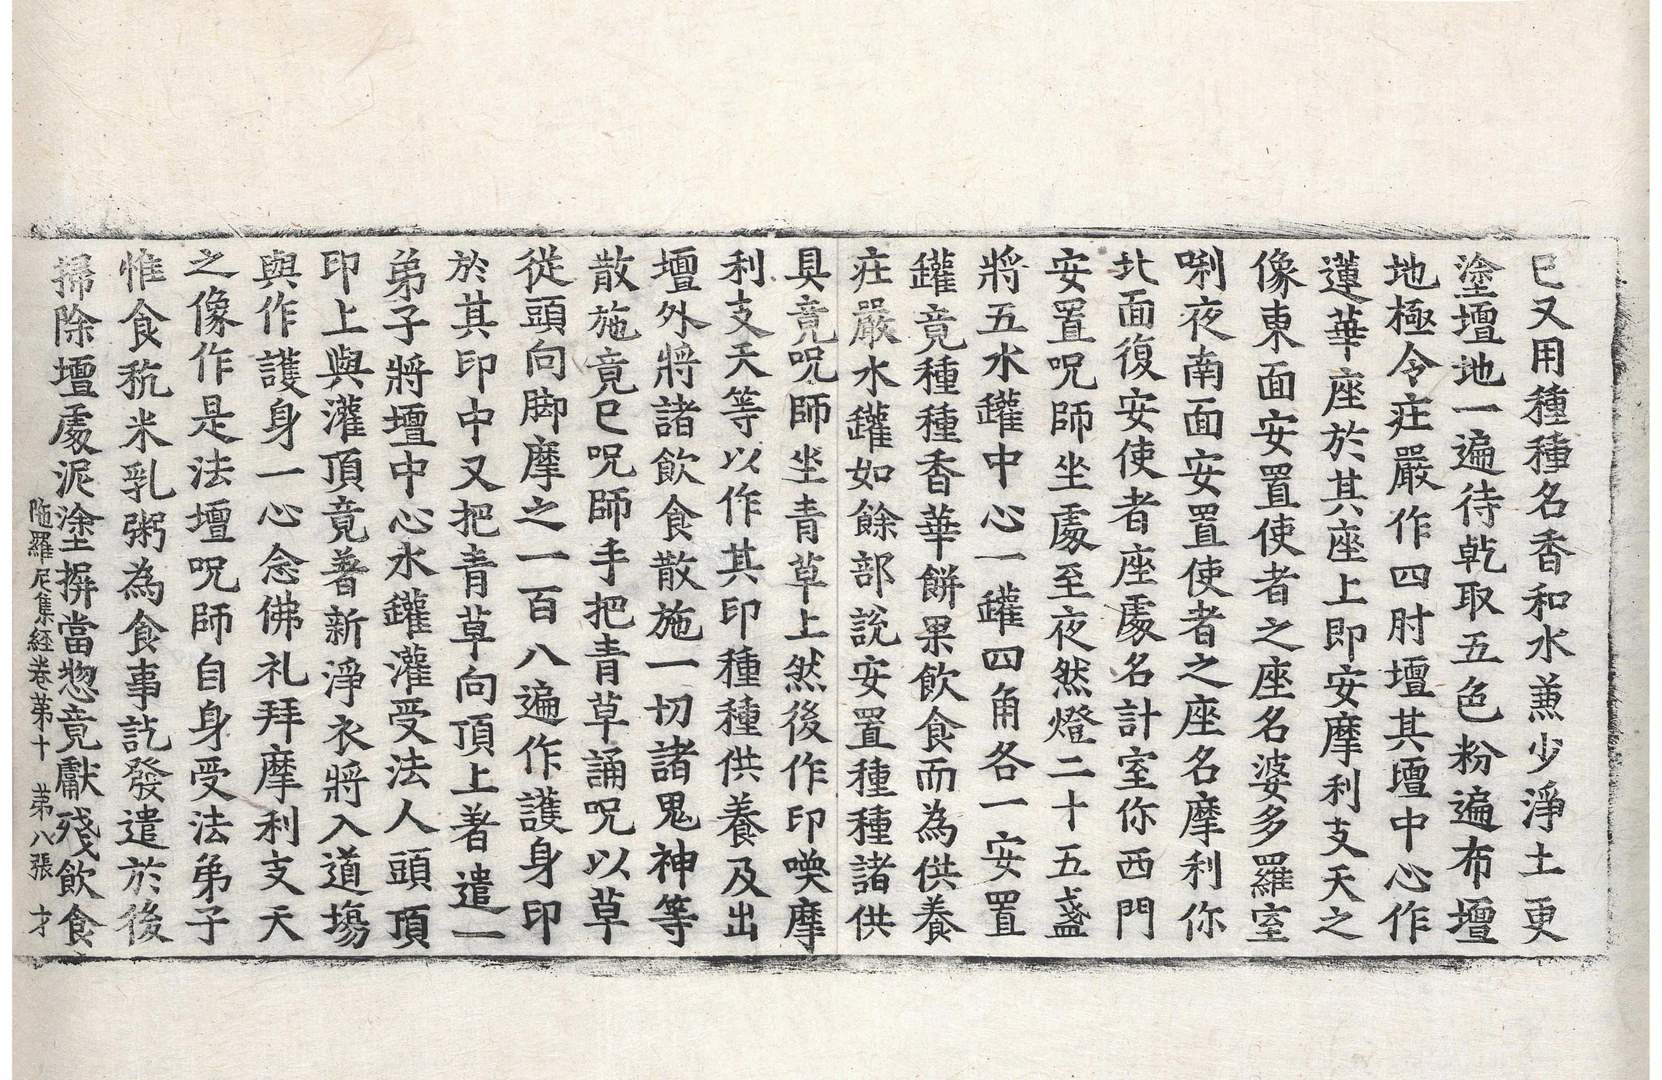 已又用種種名香和水蕉少淨土更
塗壇地一遍待乹取五色粉遍布壇
地極令㽵嚴作四肘壇其壇中心作
蓮華座於其座上即安摩利支天之
像東面安置使者之座名婆多羅室
唎夜南面安置使者之座名摩利你
北面復安使者座處名計室你西門
安置呪師坐處至夜然燈二十五盞
將五水鑵中心一鑵四角各一安置
鑵竟種種香華餅果飲食而為供養
㽵嚴水鑵如餘部說安置種種諸供
具竟呪師坐青草上然後作印喚摩
利支天等以作其印種種供養及出
壇外將諸飲食散施一切諸鬼神等
散施竟已呪師手把青草誦呪以草
從頭向脚摩之一百八遍作護身印
於其印中又把青草向頂上著遣一
弟子將壇中心水鑵灌受法人頭頂
印上與灌頂竟著新淨衣將入道塲
與作護身一心念佛礼拜摩利支天
之像作是法壇呪師自身受法弟子
惟食秔米乳粥為食事訖發遣於後
掃除壇處泥塗摒當惣竟獻殘飲食
陁羅尼集経卷第十　第八張　才